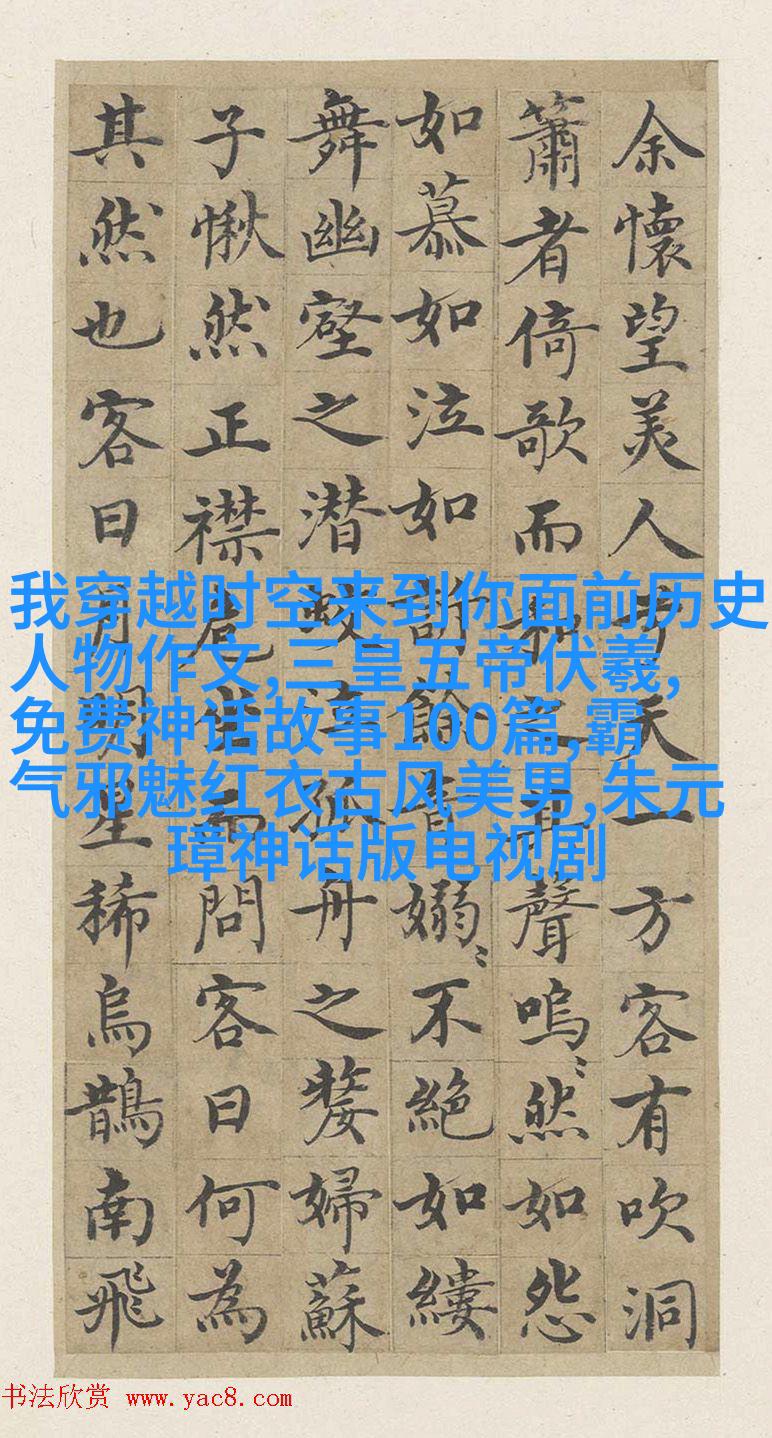 余懷望美人兮天一方客有吹洞
簫者倚歌而和之其聲嗚〻然如怨
如慕如泣如訴餘音嫋〻不絕如縷
舞幽壑之潜蛟泣孤舟之嫠婦蘇
子愀然正襟危坐而問客曰何為
其然也客曰月明星稀烏鵲南飛
我穿越时空来到你面前历史
人物作文,三皇五帝伏羲,
免费神话故事100篇,霸
气邪魅红衣古风美男,朱元
璋神话版电视剧
书法欣赏 www.yac8.com